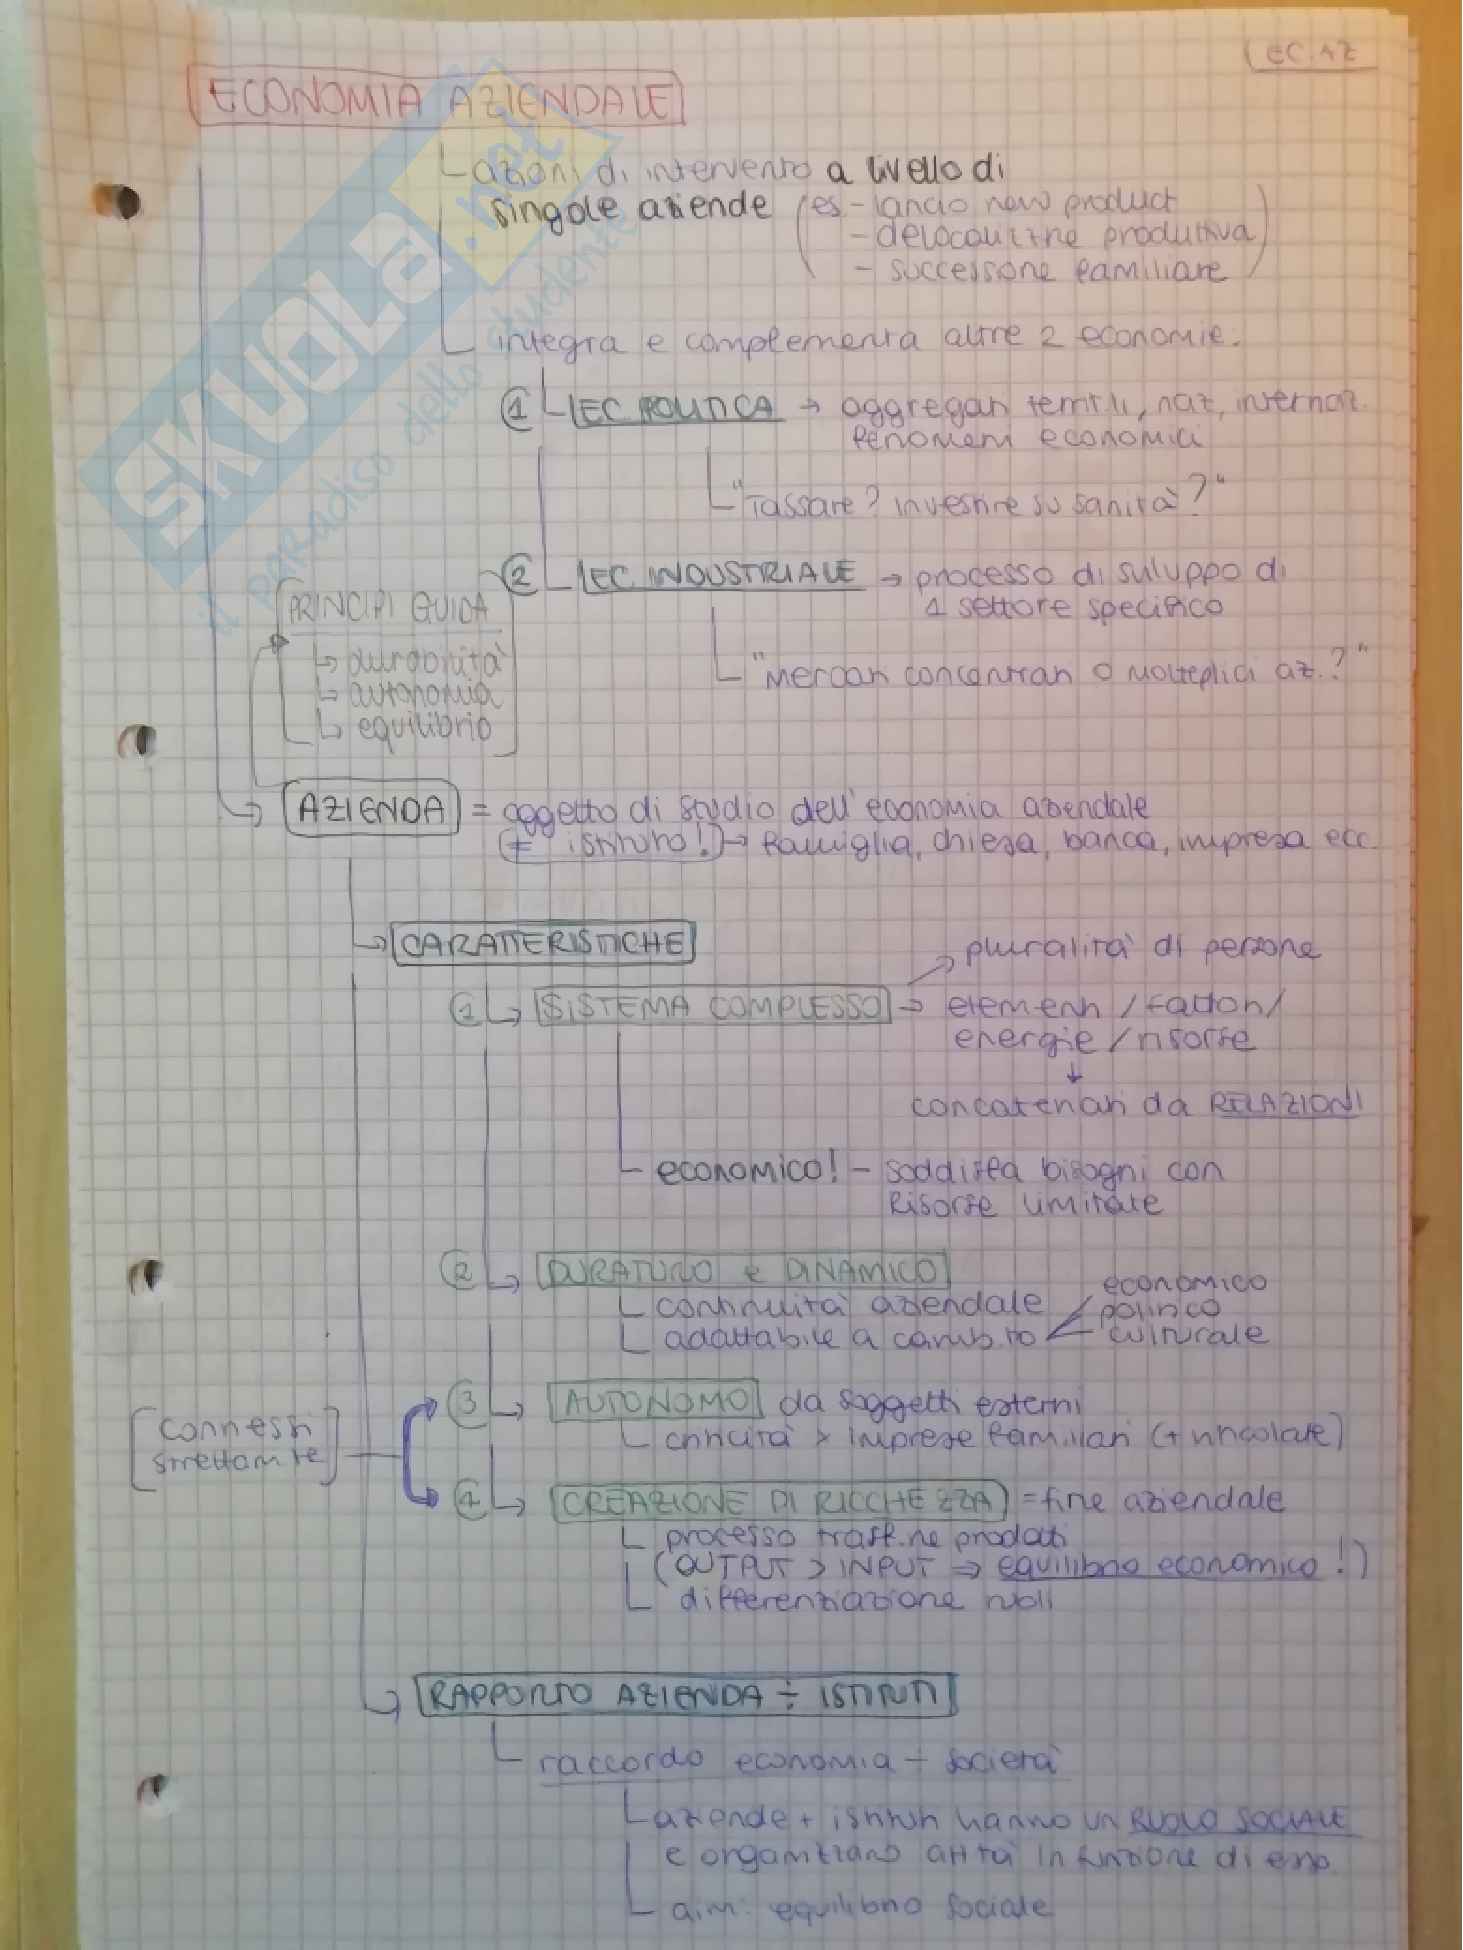 EC. AZ
ECONOMIA AZIENDALE
azioni di intervento a livello di
singole aziende (es - lancio new product
- delocalizz.ne produttiva
- successione familiare)
integra e complementa altre 2 economie.
1 EC POLITICA → aggregati territ.li, naz, internaz.
fenomeni economici
"Tassare? investire su sanità?"
2 EC INDUSTRIALE → processo di sviluppo di
1 settore specifico
"Mercati concentrati o molteplici az.?"
PRINCIPI GUIDA
↳ durabilità
↳ autonomia
↳ equilibrio
AZIENDA = oggetto di studio dell'economia aziendale
(≠ istituto!) → famiglia, chiesa, banca, impresa ecc.
CARATTERISTICHE
→ pluralità di persone
1 → SISTEMA COMPLESSO → elementi / fattori /
energie / risorse
↓
concatenati da RELAZIONI
economico! - soddisfa bisogni con
Risorse limitate
2 → DURATURO e DINAMICO
continuità aziendale
adattabile a camb.to
economico
politico
culturale
3 → AUTONOMO da soggetti esterni
criticità x imprese familiari (+ vincolate)
[connessi
strettam.te]
4 → CREAZIONE DI RICCHEZZA = fine aziendale
processo trasf.ne prodotti
(OUTPUT > INPUT ⇒ equilibrio economico!)
differenziazione ruoli
RAPPORTO AZIENDA ÷ ISTITUTI
raccordo economia ÷ società
aziende + istituti hanno un RUOLO SOCIALE
e organizzano att.tà in funzione di esso
aim: equilibrio sociale
SKUOLA.net
il PARADISO dello studente